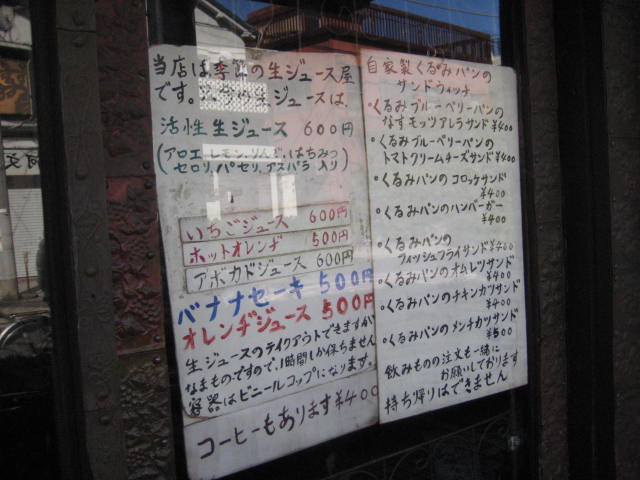 当店は季節の生ジュース屋
です。 ジュースは、
活性生ジュース 600円
(アロエ、レモン、りんご、はちみつ
セロリ、パセリ、アスパラ 入り)
いちごジュース 600円
ホットオレンヂ 500円
アボカドジュース 600円
バナナセーキ 500円
オレンヂジュース 500円
生ジュースのテイクアウトできますが
なまものですので、1時間しか保ちません
容器はビニールコップになります。
コーヒーもあります ¥400
自家製くるみパンの
サンドウィッチ
・くるみブルーベリーパンの
なすモッツアレラサンド ¥400
・くるみブルーベリーパンの
トマトクリームチーズサンド ¥400
・くるみパンのコロッケサンド
¥400
・くるみパンのハンバーガー
¥400
・くるみパンの
フィッシュフライサンド ¥400
・くるみパンのオムレツサンド
¥400
・くるみパンのチキンカツサンド
¥400
・くるみパンのメンチカツサンド
¥500
飲みものの注文も一緒に
お願いしております
持ち帰りはできません